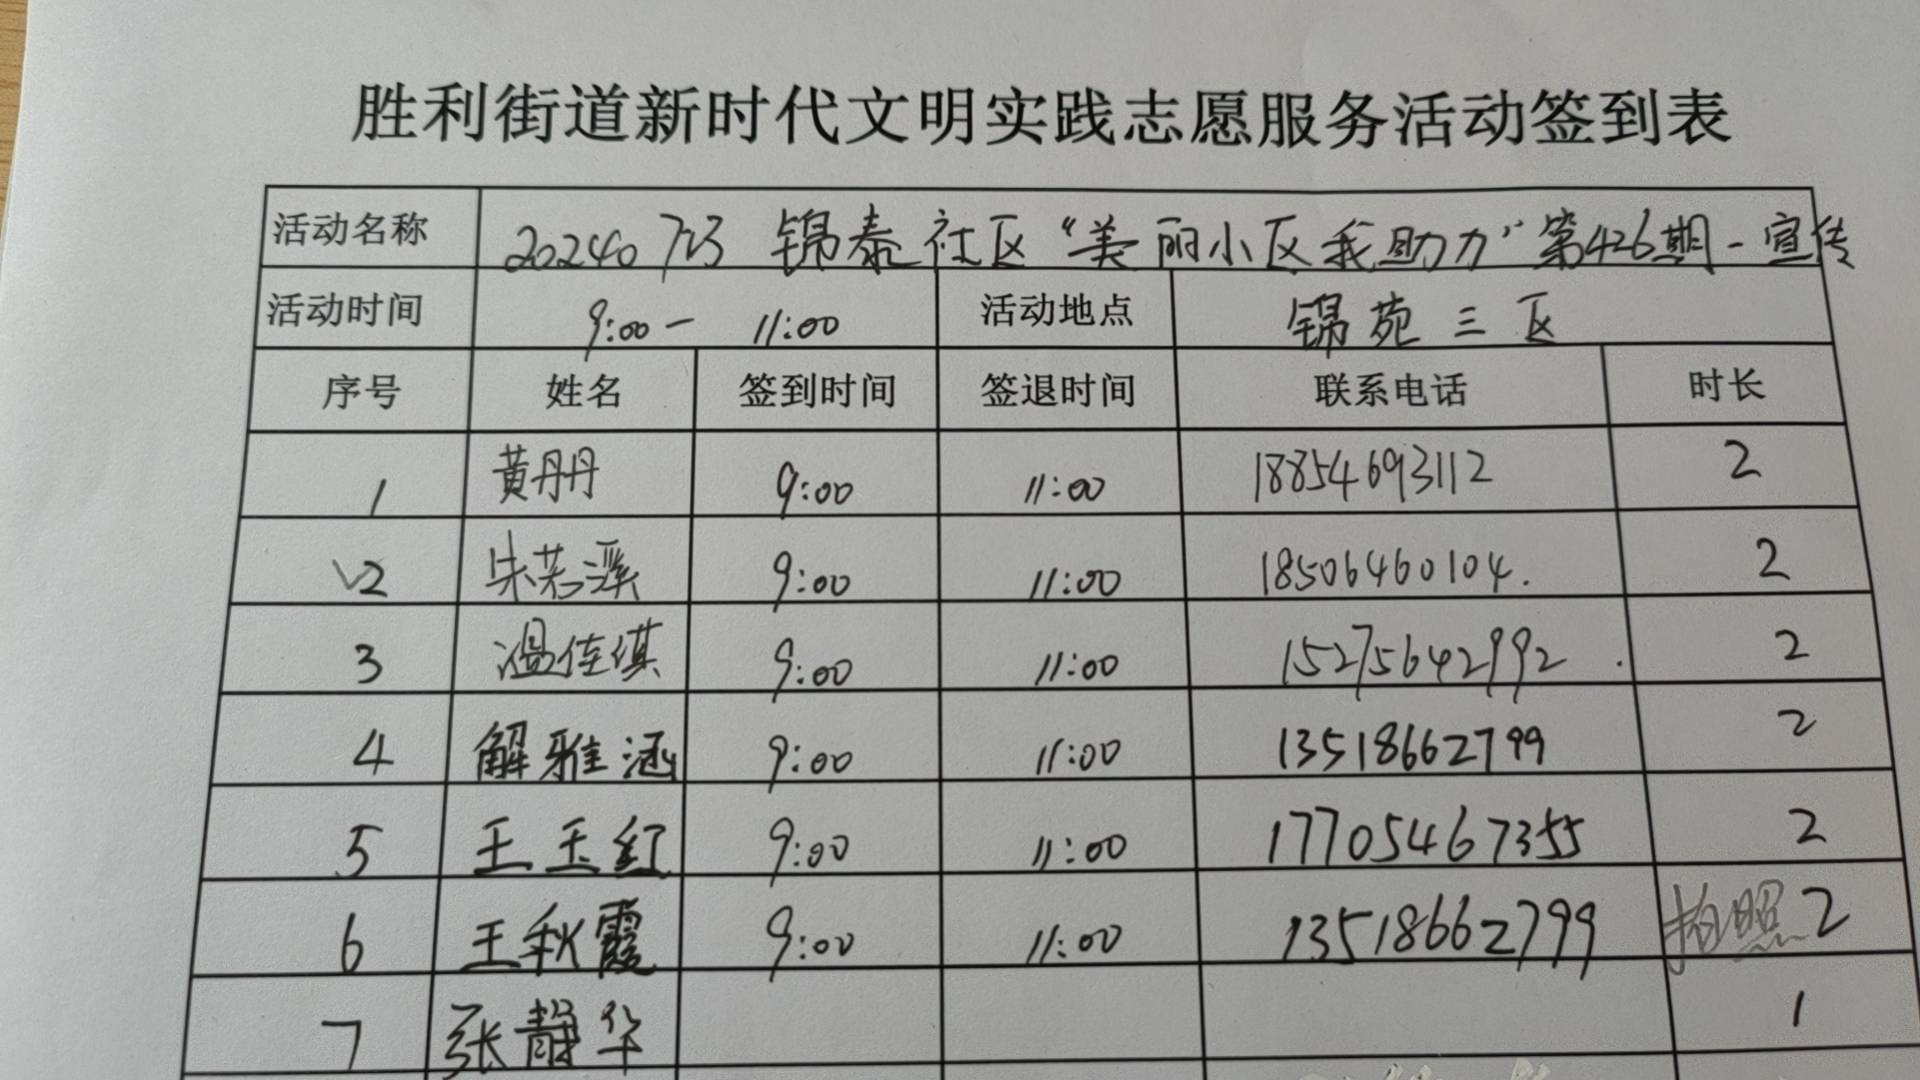 胜利街道新时代文明实践志愿服务活动签到表
活动名称 20240723 锦泰社区“美丽小区我助力”第426期-宣传
活动时间 9:00- 11:00 活动地点 锦苑三区
序号 姓名 签到时间 签退时间 联系电话 时长
1 黄丹丹 9:00 11:00 18854693112 2
√2 朱若溪 9:00 11:00 18506460104. 2
3 温佳琪 9:00 11:00 15275642992 . 2
4 解雅涵 9:00 11:00 13518662799 2
5 王玉红 9:00 11:00 17705467355 2
6 王秋霞 9:00 11:00 13518662799 拍照 2
7 张静华 1